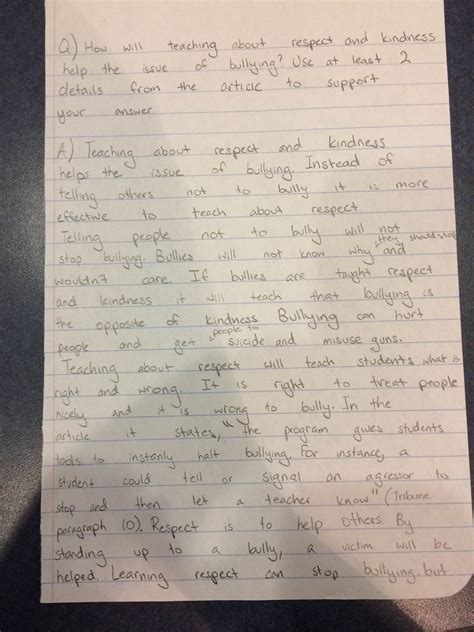 Q) How will teaching about respect and kindness
help the issue of bullying? Use at least 2
details from the article to support
your answer
A) Teaching about respect and kindness
helps the issue of bullying. Instead of
telling others not to bully it is more
effective to teach about respect
Telling people not to bully will not
stop bullying. Bullies will not know why they should stop and
wouldn't care. If bullies are taught respect
and kindness it will teach that bullying is
the opposite of kindness Bullying can hurt
people and get people to suicide and misuse guns.
Teaching about respect will teach students what is
right and wrong. It is right to treat people
nicely and it is wrong to bully. In the
article it states, "the program gives students
tools to instanly halt bullying. For instance, a
student could tell or signal an agressor to
stop and then let a teacher know" (Tribune
paragraph 10). Respect is to help others. By
standing up to a bully, a victim will be
helped. Learning respect can stop bullying but